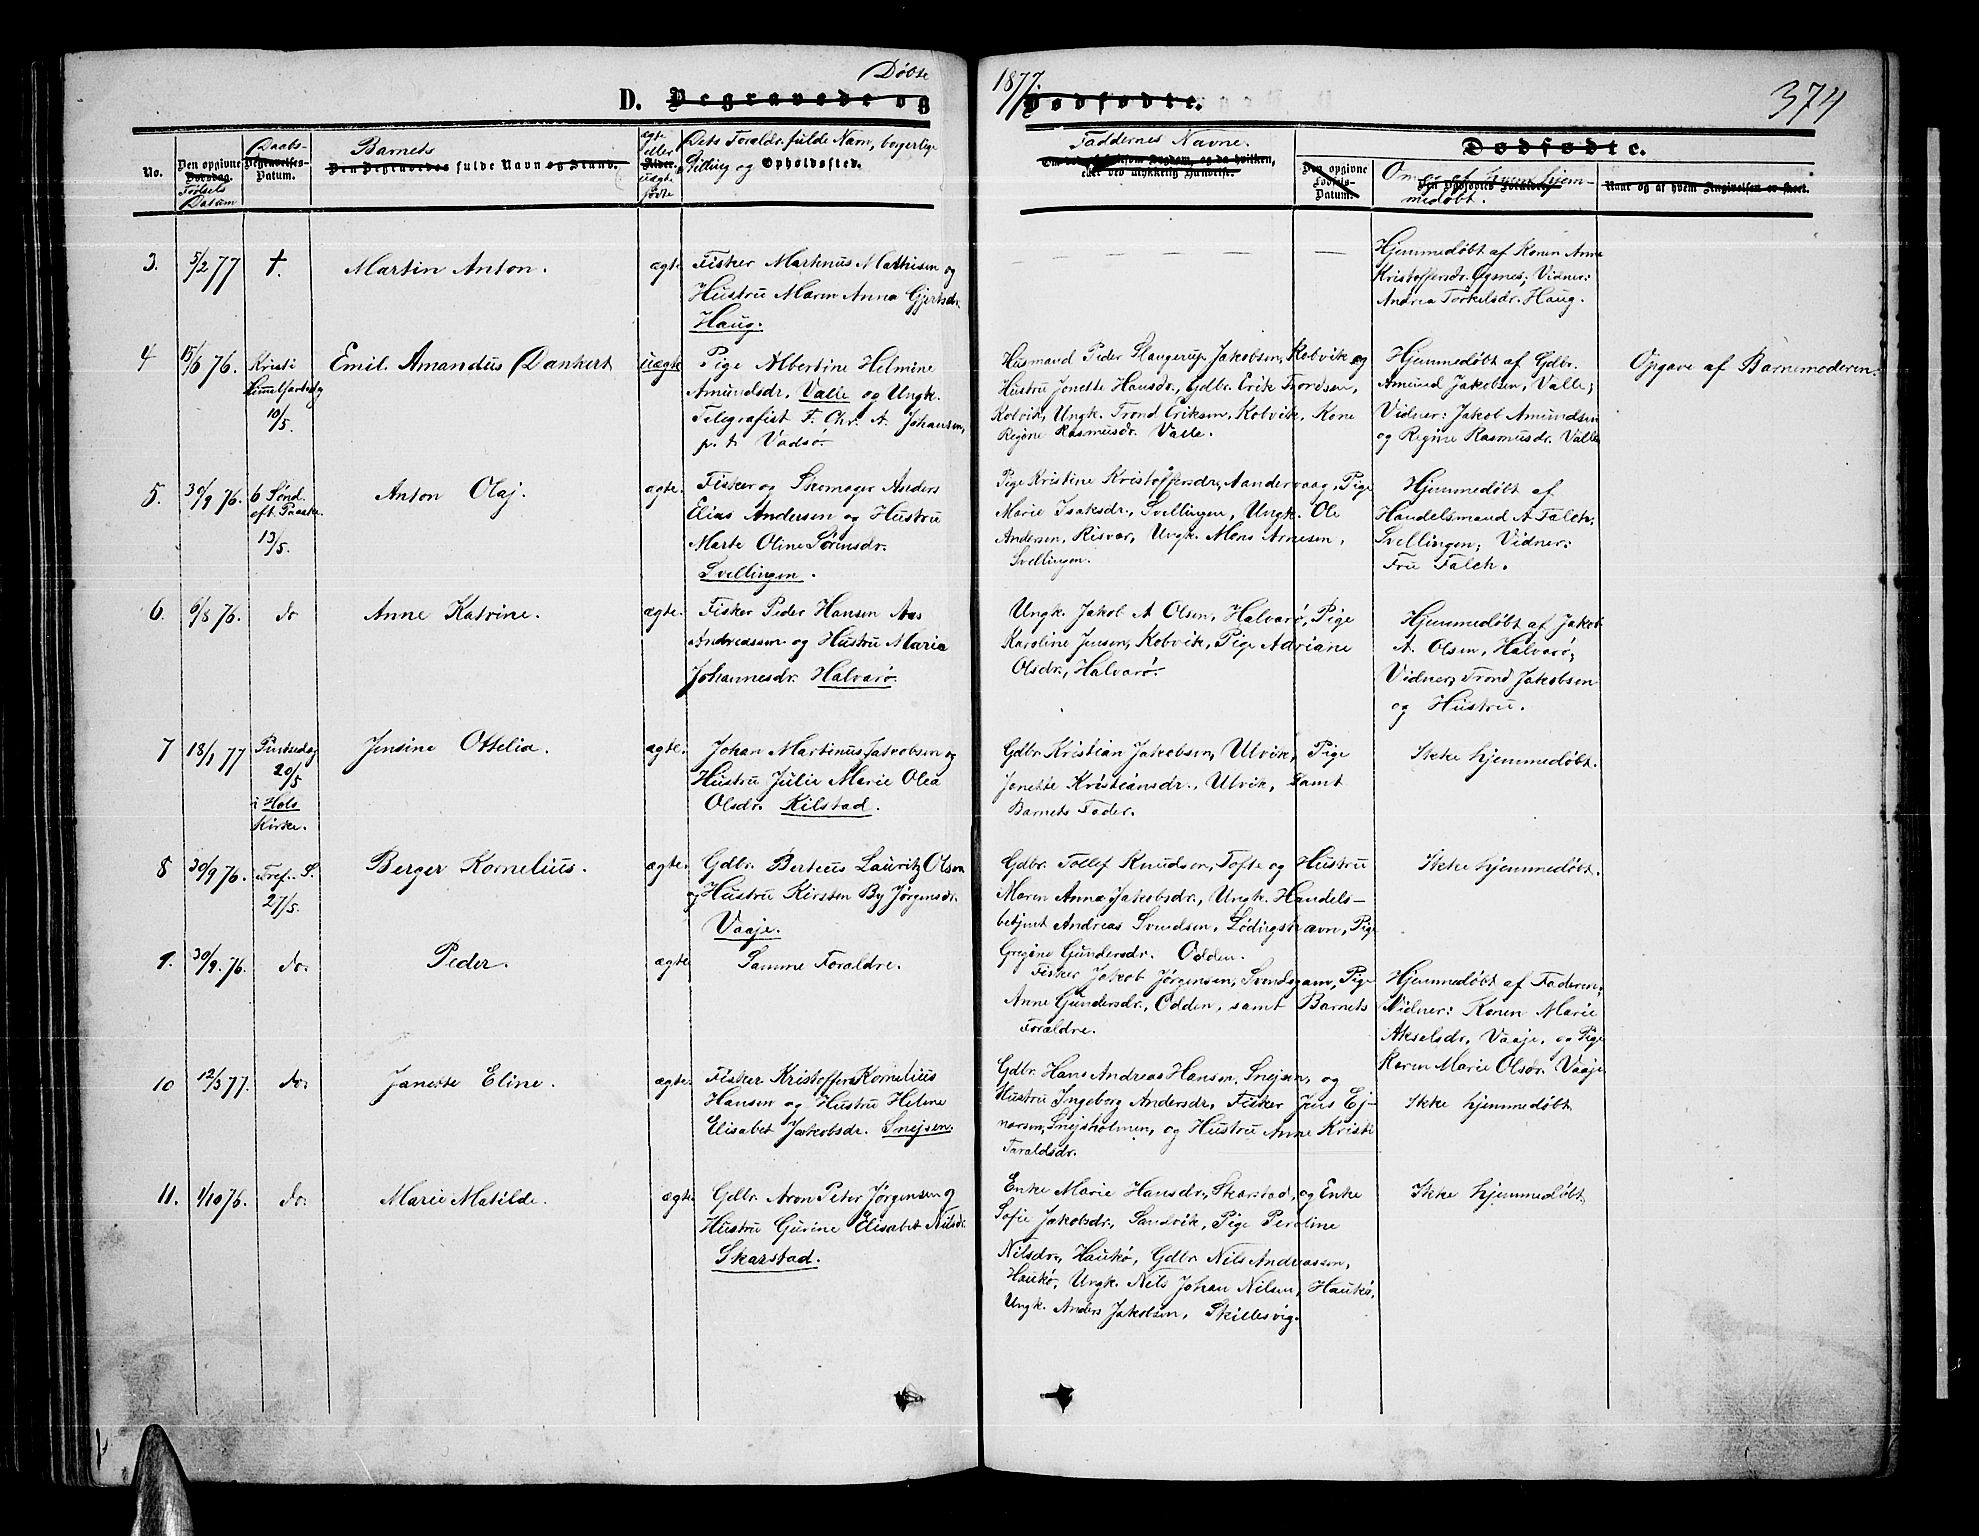 Døbte 1877.
D. Begravede og Dødfødte.
374
No.
Den opgivne Dødsdag. Fødsels Datum
Daabs- Begravelses-Datum.
Barnets
Den Begravedes fulde Navn og Stand.
ægte eller Alder. uægt. fødte
Dets Forældr. fulde Nam, borgerlige
Stilling og Opholdssted.
Faddernes Navne.
eller ved ulykkelig Hændelse.
Den opgivne Fødsels-Datum.
Dødfødte.
Om og af hvem hjem-
medøbt.
Den Dødfødtes Forældre.
Naar og af hvem Angivelsen er skeet.
3. 5/2 77 †. Martin Anton. ægte
Fisker Martinus Mathisen og
Hustru Maren Anna Gjertsdr.
Haug.
Hjemmedøbt af Konen Anne
Kristoffersdr. Øgsnes; Vidner:
Andrea Torkelsdr. Haug.
4 15/6 76. Kristi
Himmelfartsdag
10/5.
Emil Amandus Dankert uægte
Pige Albertine Helmine
Amundsdr, Valle og Ungk.
Telegrafist F. Chr. A. Johansen,
p. t. Vadsø.
Husmand Peder Slangerup Jakobsen, Kobvik og
Hustru Jonette Hansdr, Gdbr. Erik Trondsen,
Kobvik, Ungk. Trond Eriksen, Kobvik, Kone
Regine Rasmusdr. Valle.
Hjemmedøbt af Gdbr.
Amund Jakobsen, Valle;
Vidner: Jakob Amundsen
og Regine Rasmusdr. Valle
Opgave af Barnemoderen.
5. 30/9 76. 6 Sønd.
eft. Paaske.
13/5.
Anton Olaj. ægte.
Fisker og Skomager Anders
Elias Andersen og Hustru
Marte Oline Sørensdr.
Svellingen.
Pige Kristine Kristoffersdr, Sandervaag, Pige
Marie Isaksdr, Svellingen, Ungk. Ole
Andersen, Risvær, Ungk. Mons Arnesen,
Svellingen.
Hjemmedøbt af
Handelsmand A Falch,
Svellingen; Vidner:
Fru Falch.
6. 6/8 76. do Anne Katrine. ægte.
Fisker Peder Hansen Aas
Andreassen og Hustru Maria
Johannesdr. Halvarø.
Ungk. Jakob A Olsen, Halvarø, Pige
Karoline Jensen, Kobvik, Pige Adriane
Olsdr, Halvarø.
Hjemmedøbt af Jakob
A. Olsen, Halvarø;
Vidner, Trond Jakobsen
og Hustru.
7 18/1 77 Pintsedag
20/5
i Hols
Kirke.
Jensine Ottelia. ægte.
Johan Martinus Jakobsen og
Hustru Julie Marie Olea
Olsdr. Kilstad.
Gdbr. Kristian Jakobsen, Ulvik, Pige
Jonette Kristiansdr., Ulvik, samt
Barnets Fader.
Ikke hjemmedøbt.
8 30/9 76. Tref. S.
27/5.
Berger Kornelius. ægte.
Gdbr. Berteus Lauritz Olsen
og Hustru Kirsten By Jørgensdr.
Vaaje.
Gdbr. Tollef Knudsen, Tofte og Hustru
Maren Anna Jakobsdr, Ungk. Handels-
betjent Andreas Svendsen, Lødingshavn, Pige
Gregine Gundersdr. Odden.
Ikke hjemmedøbt.
9. 30/9. 76. do. Peder. ægte
Samme Forældre.
Fisker Jakob Jørgensen, Svendsgam, Pige
Anne Gundersdr, Odden, samt Barnets
Forældre.
Hjemmedøbt af Faderen;
Vidner: Konen Marie
Akselsdr, Vaaje, og Pige
Karen Marie Olsdr. Vaaje
10 12/3 77. do. Janette Eline. ægte.
Fisker Kristoffer Kornelius
Hansen og Hustru Heline
Elisabet Jakobsdr. Snejsen.
Gdbr. Hans Andreas Hansen, Snejsen, og
Hustru Ingeborg Andersdr, Fisker Jens Ej-
narsen, Snejsholmen, og Hustru Anne Kristi
Taraldsdr.
Ikke hjemmedøbt
11. 1/10 76. do. Marie Matilde. ægte.
Gdbr. Aron Peter Jørgensen og
Hustru Gurine Elisabet Nilsdr.
Skarstad.
Enke Marie Hansdr, Skarstad, og Enke
Sofie Jakobsdr, Sandvik, Pige Peroline
Nilsdr, Haukø, Gdbr. Nils Andreassen,
Haukø, Ungk. Nils Johan Nilsen, Haukø,
Ungk. Anders Jakobsen, Skillesvig.
Ikke hjemmedøbt